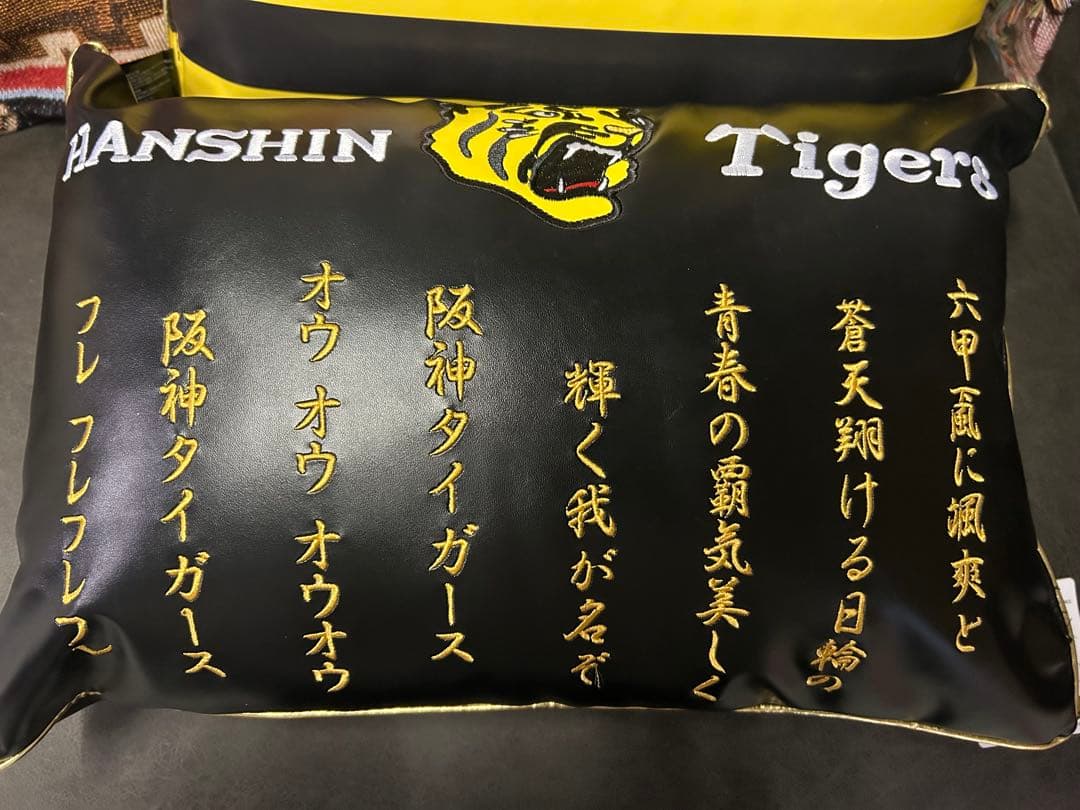 HANSHIN Tigers
六甲颪に颯爽と
蒼天翔ける日輪の
青春の覇気美しく
輝く我が名ぞ
阪神タイガース
オウ オウ オウオウ
阪神タイガース
フレ フレフレフレ